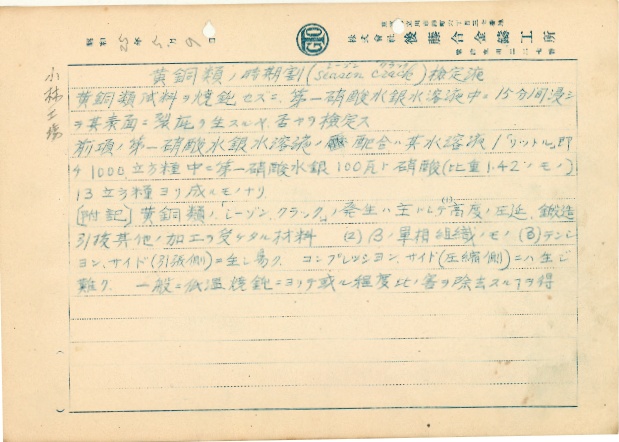 株式會社 後藤合金鑄工所
昭和 25年 5月 9日
小林工場
黄銅類ノ時期割(シーズン クラック season crack)検定液
黄銅類試料ヲ焼鈍セズニ、第一硝酸水銀水溶液中ニ15分間浸シ
ヲ其表面ニ裂疵ヲ生スルヤ否ヤヲ検定ス
前項ノ第一硝酸水銀水溶液ノ配合ハ其水溶液1「リットル」即
チ1000立方糎中ニ第一硝酸水銀100瓦ト硝酸(比重1.42ノモノ)
13立方糎ヨリ成ルモノナリ
[附記] 黄銅類ノ「シーズン、クラック」ノ発生ハ主トシテ(1)高度ノ圧延、鍛造
引抜其他ノ加工ヲ受ケタル材料 (2) βノ単相組織ノモノ (3) テンシ
ヨン、サイド(引張側)ニ生シ易ク コンプレッシヨン、サイド(圧縮側)ニハ生じ
難ク 一般ニ低温焼鈍ニヨリテ或ル程度此ノ害ヲ除去スルヲ得